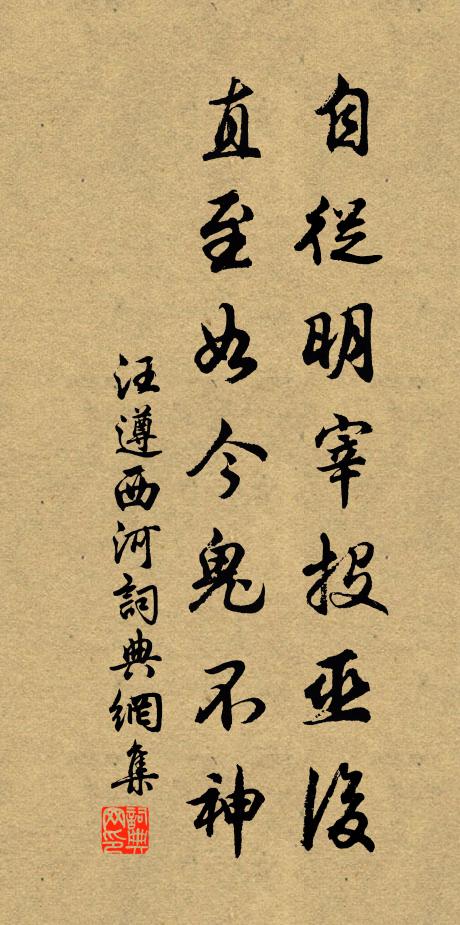 自從明宰投巫後
直至如今鬼不神
汪遵西河詞典網集
詞典网印